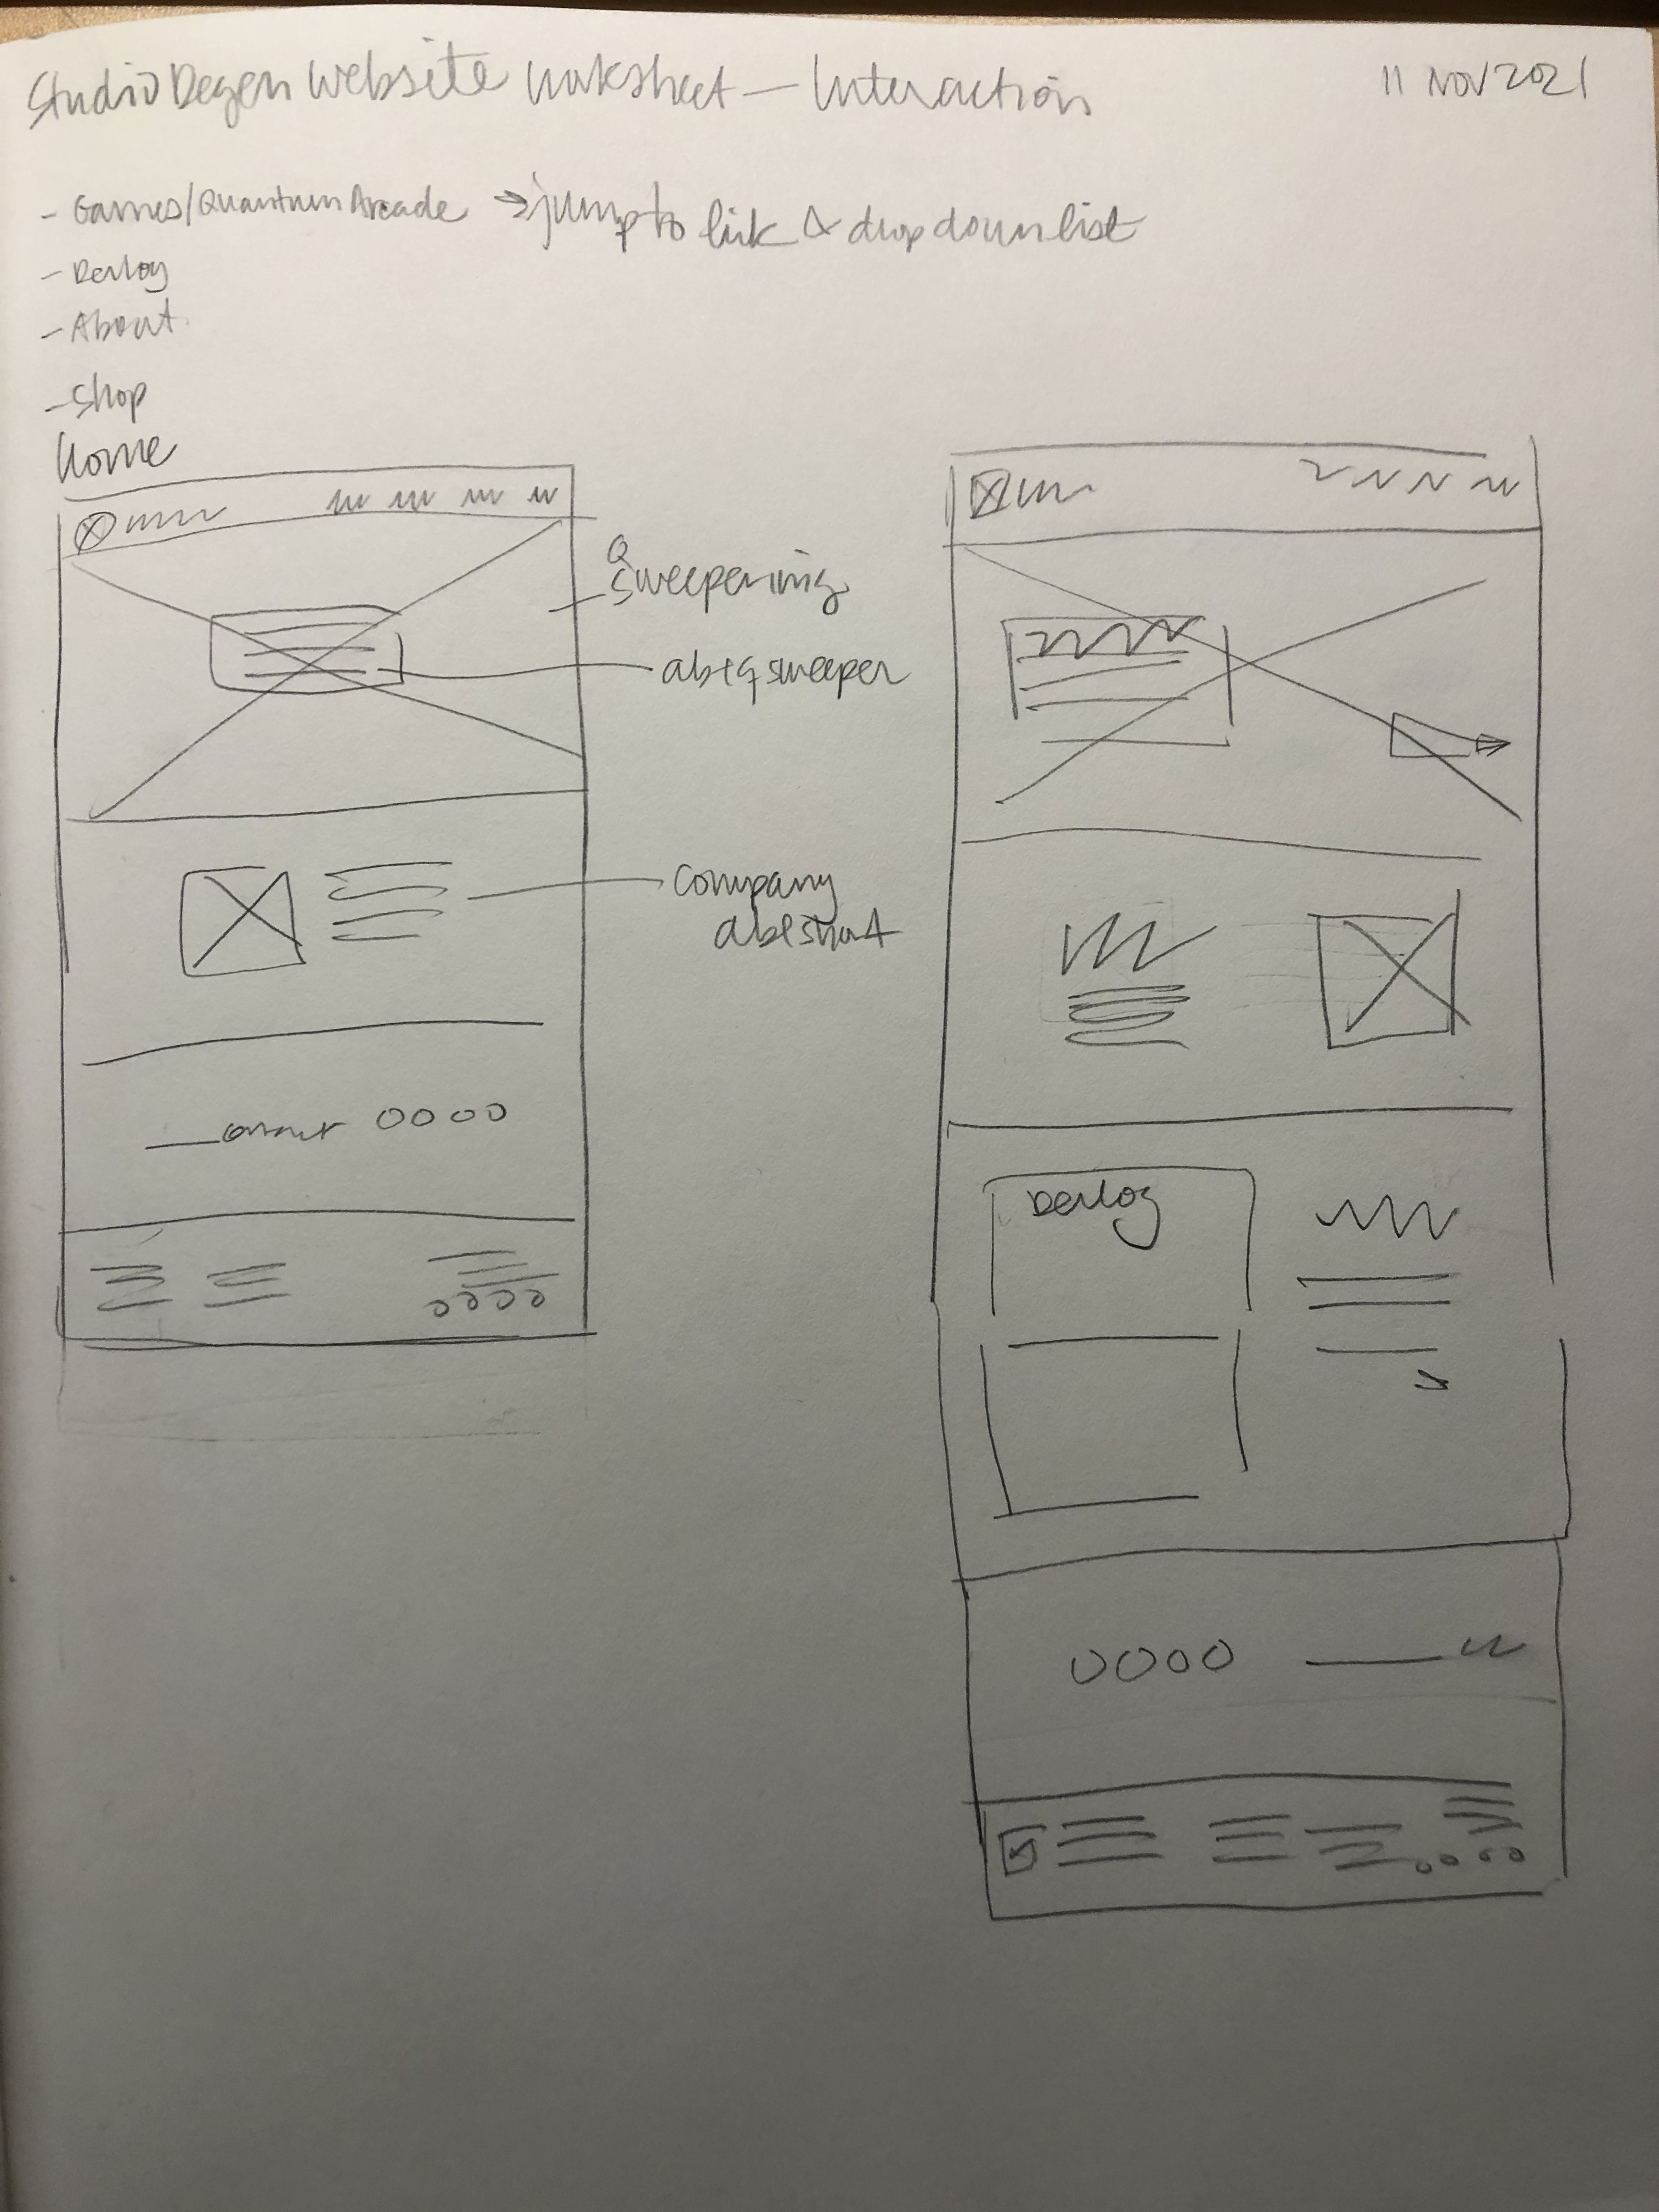 Studio Degen Website Worksheet — Interaction
11 NOV 2021
- Games/Quantum Arcade → jump to link & drop down list
- Devlog
- About
- Shop
Home
Q
Sweepering
abt qsweeper
company
Devlog